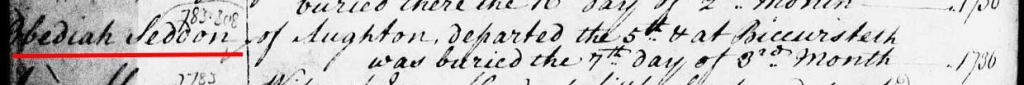 buried there the 10 day of 2 month 1736
783-308
Obediah Seddon of Aughton, departed the 5th & at Bickersteth
was buried the 7th day of 3rd Month 1736
2783